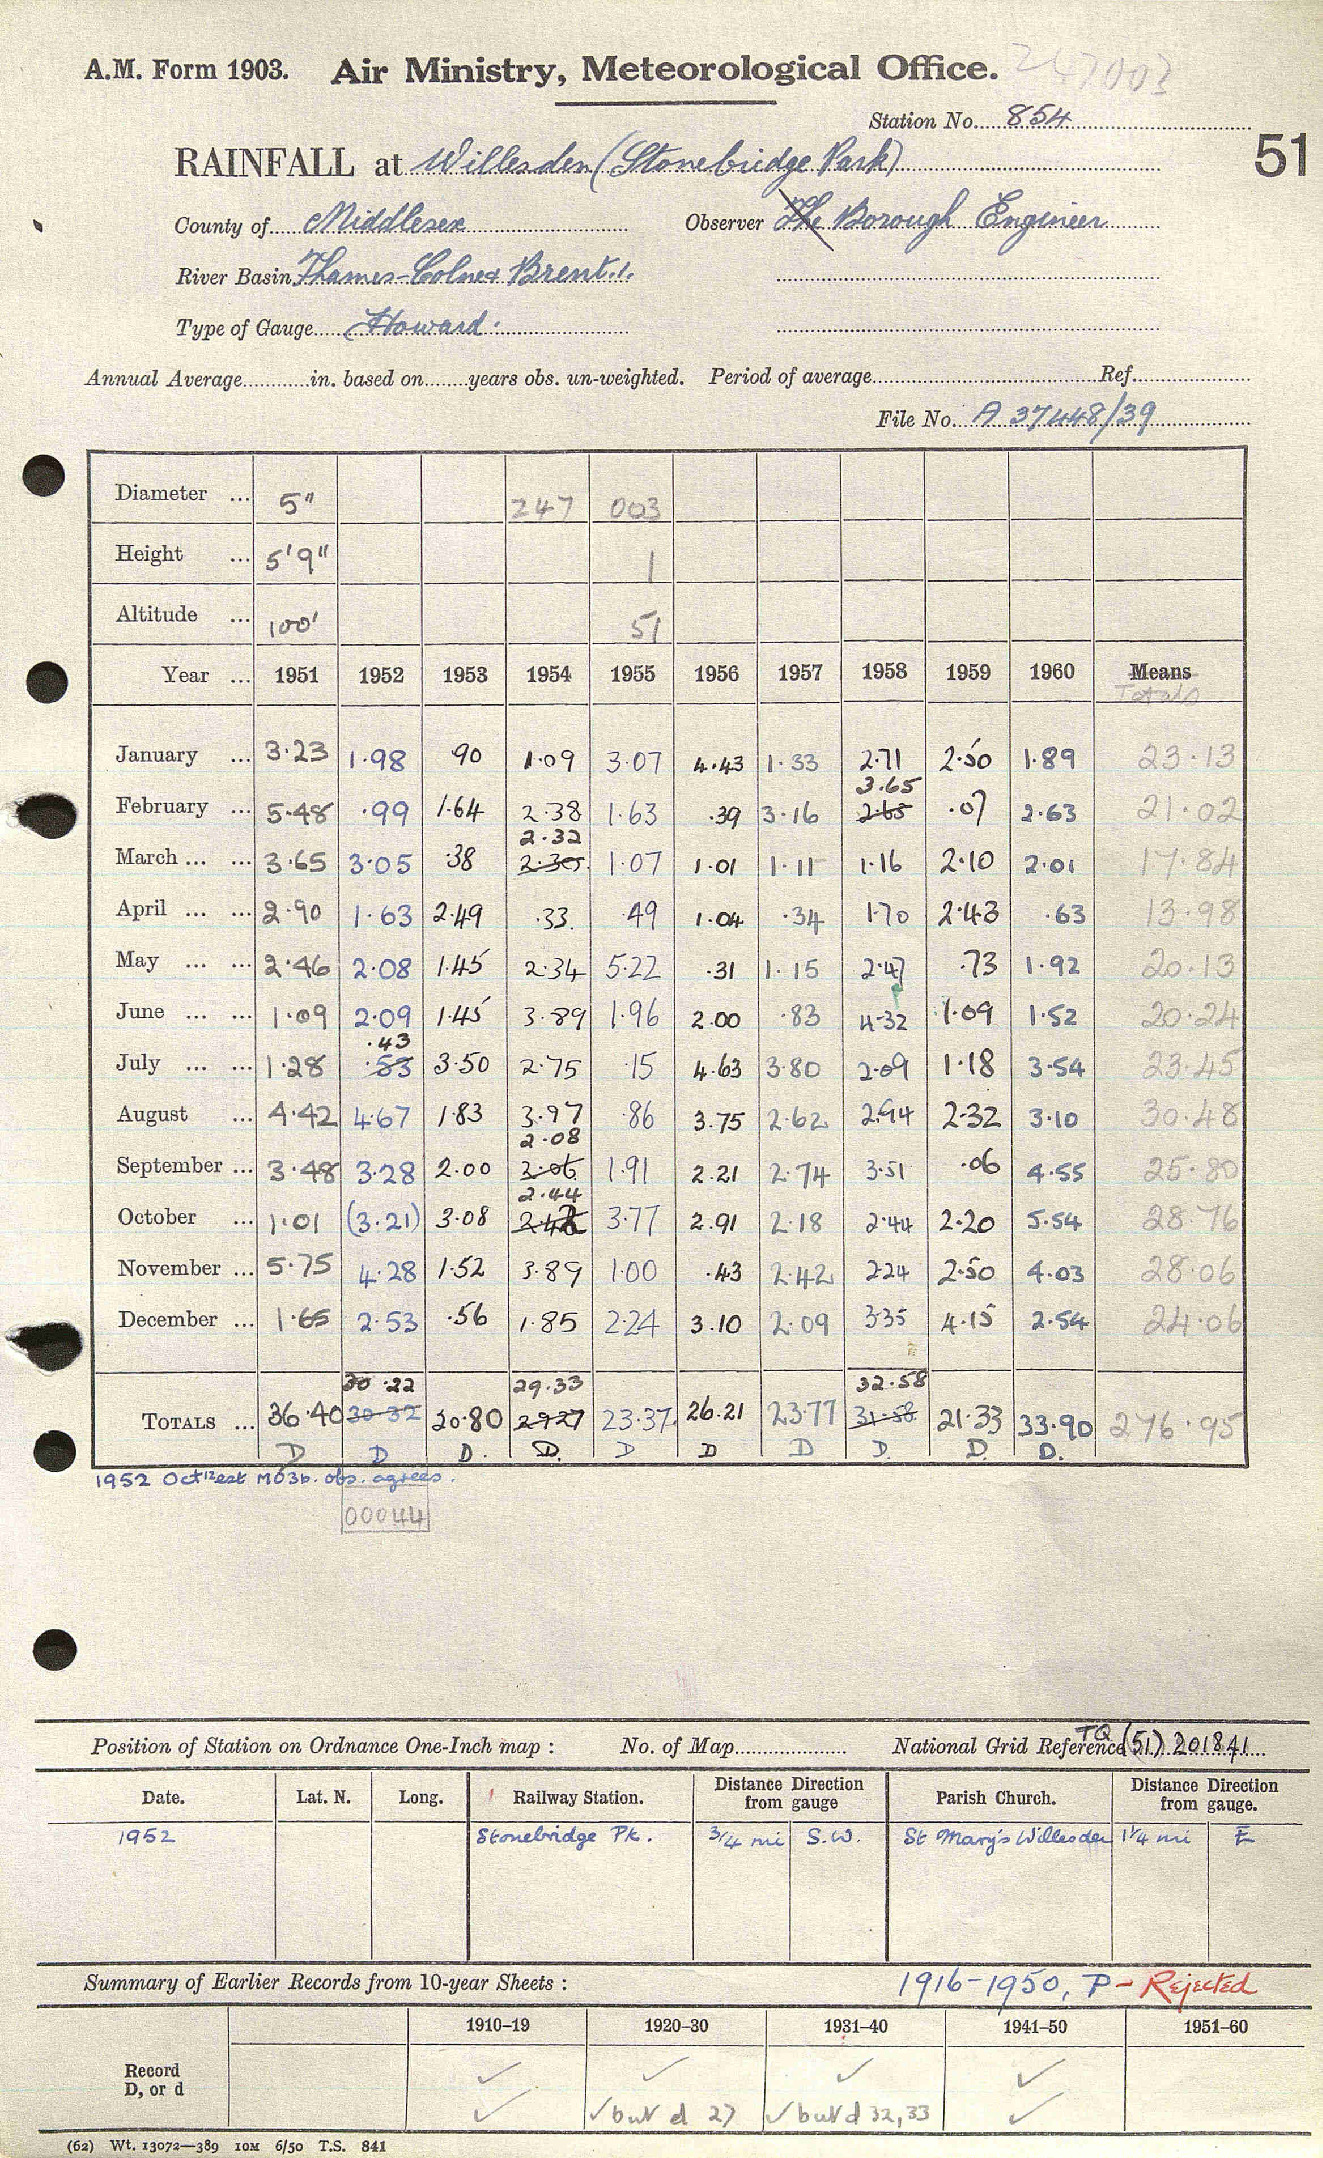 A.M. Form 1903. Air Ministry, Meteorological Office.
Station No. 854
51
RAINFALL at Willesden (Stonebridge Park)
County of Middlesex Observer The Borough Engineer
River Basin Thames-Colne & Brent.
Type of Gauge Howard.
Annual Average in. based on years obs. un-weighted. Period of average Ref.
File No. A 37448/39
Diameter ... 5" 247 003
Height ... 5'9" 1
Altitude ... 100' 51
Year ... 1951 1952 1953 1954 1955 1956 1957 1958 1959 1960 Means
Totals
January ... 3·23 1·98 ·90 1·09 3·07 4·43 1·33 2·71 2·50 1·89 23·13
3·65
February ... 5·48 ·99 1·64 2·38 1·63 ·39 3·16 2·65 ·07 2·63 21·02
2·32
March ... ... 3·65 3·05 ·38 2·30 1·07 1·01 1·11 1·16 2·10 2·01 17·84
April ... ... 2·90 1·63 2·49 ·33 ·49 1·04 ·34 1·70 2·43 ·63 13·98
May ... ... 2·46 2·08 1·45 2·34 5·22 ·31 1·15 2·47 ·73 1·92 20·13
June ... ... 1·09 2·09 1·45 3·89 1·96 2·00 ·83 4·32 1·09 1·52 20·24
·43
July ... ... 1·28 ·53 3·50 2·75 ·15 4·63 3·80 2·09 1·18 3·54 23·45
August ... 4·42 4·67 1·83 3·97 ·86 3·75 2·62 2·94 2·32 3·10 30·48
2·08
September ... 3·48 3·28 2·00 3·06 1·91 2·21 2·74 3·51 ·06 4·55 25·80
2·44
October ... 1·01 (3·21) 3·08 3·77 2·91 2·18 2·44 2·20 5·54 28·76
November ... 5·75 4·28 1·52 3·89 1·00 ·43 2·42 2·24 2·50 4·03 28·06
December ... 1·65 2·53 ·56 1·85 2·24 3·10 2·09 3·35 4·15 2·54 24·06
30·22 29·33 32·58
TOTALS ... 36·40 30·32 20·80 29·27 23·37 26·21 23·77 31·58 21·33 33·90 276·95
D D D. D. D D D D. D. D.
1952 Oct 12 est MO3b. obs. agrees.
00044
Position of Station on Ordnance One-Inch map : No. of Map National Grid Reference TQ (51) 201841
Date. Lat. N. Long. Railway Station. Distance from gauge Direction Parish Church. Distance from gauge. Direction
1952 Stonebridge Pk. 3/4 mi S.W. St Mary's Willesden 1 1/4 mi E
Summary of Earlier Records from 10-year Sheets : 1916-1950, P - Rejected
1910–19 1920–30 1931–40 1941–50 1951–60
Record ✓ ✓ ✓ ✓
D, or d ✓ ✓ but d 27 ✓ but d 32, 33 ✓
(62) Wt. 13072—389 10M 6/50 T.S. 841